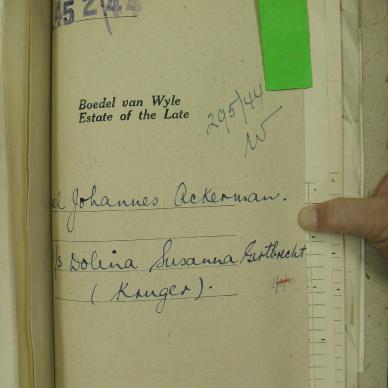 45 2/44
Boedel van Wyle
Estate of the Late
295/44
el Johannes Ackerman.
/s Dolina Susanna Gertbrecht
(Kruger).